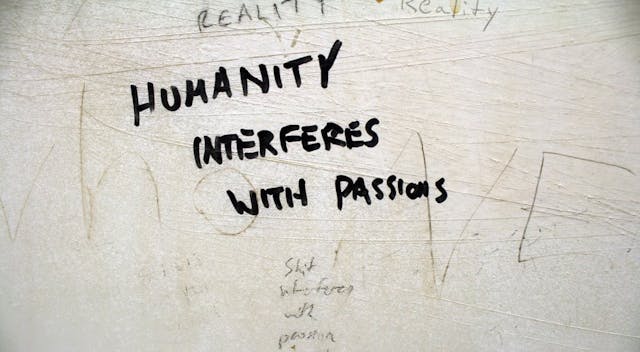 REALITY Reality
HUMANITY
INTERFERES
WITH PASSIONS
Shit
interferes
with
passion